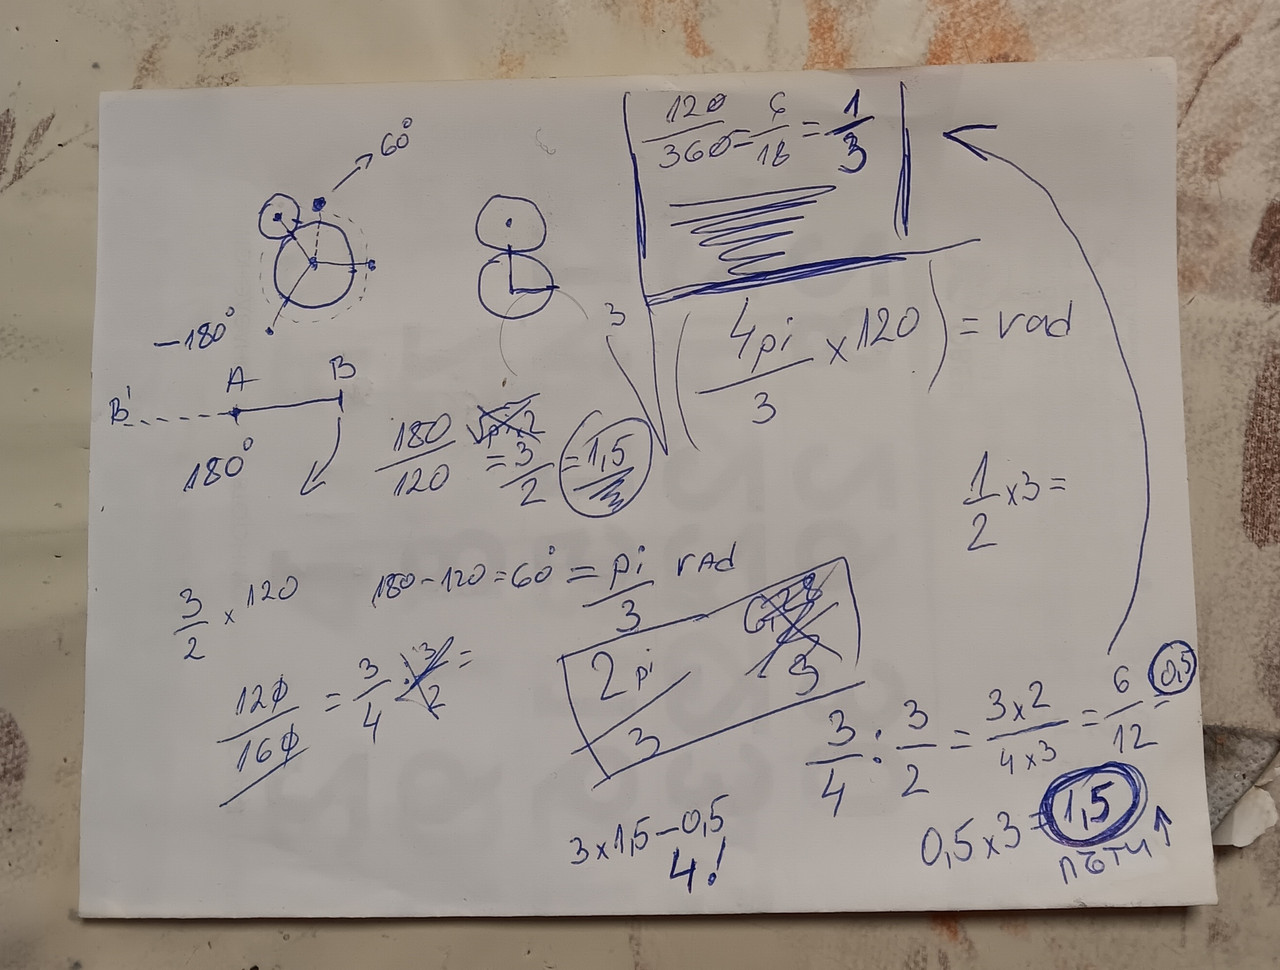 60°
120/360 = 6/18 = 1/3
-180°
A B
B'
180°
3
(4pi/3 x 120) = rad
180/120 = 3/2 = 1,5
1/2 x 3 =
3/2 x 120
180 - 120 = 60° = pi/3 rad
120/160 = 3/4 =
2pi/3
3/4 : 3/2 = 3x2/4x3 = 6/12 = 0,5
3 x 1,5 - 0,5
4!
0,5 x 3 = 1,5
пъти